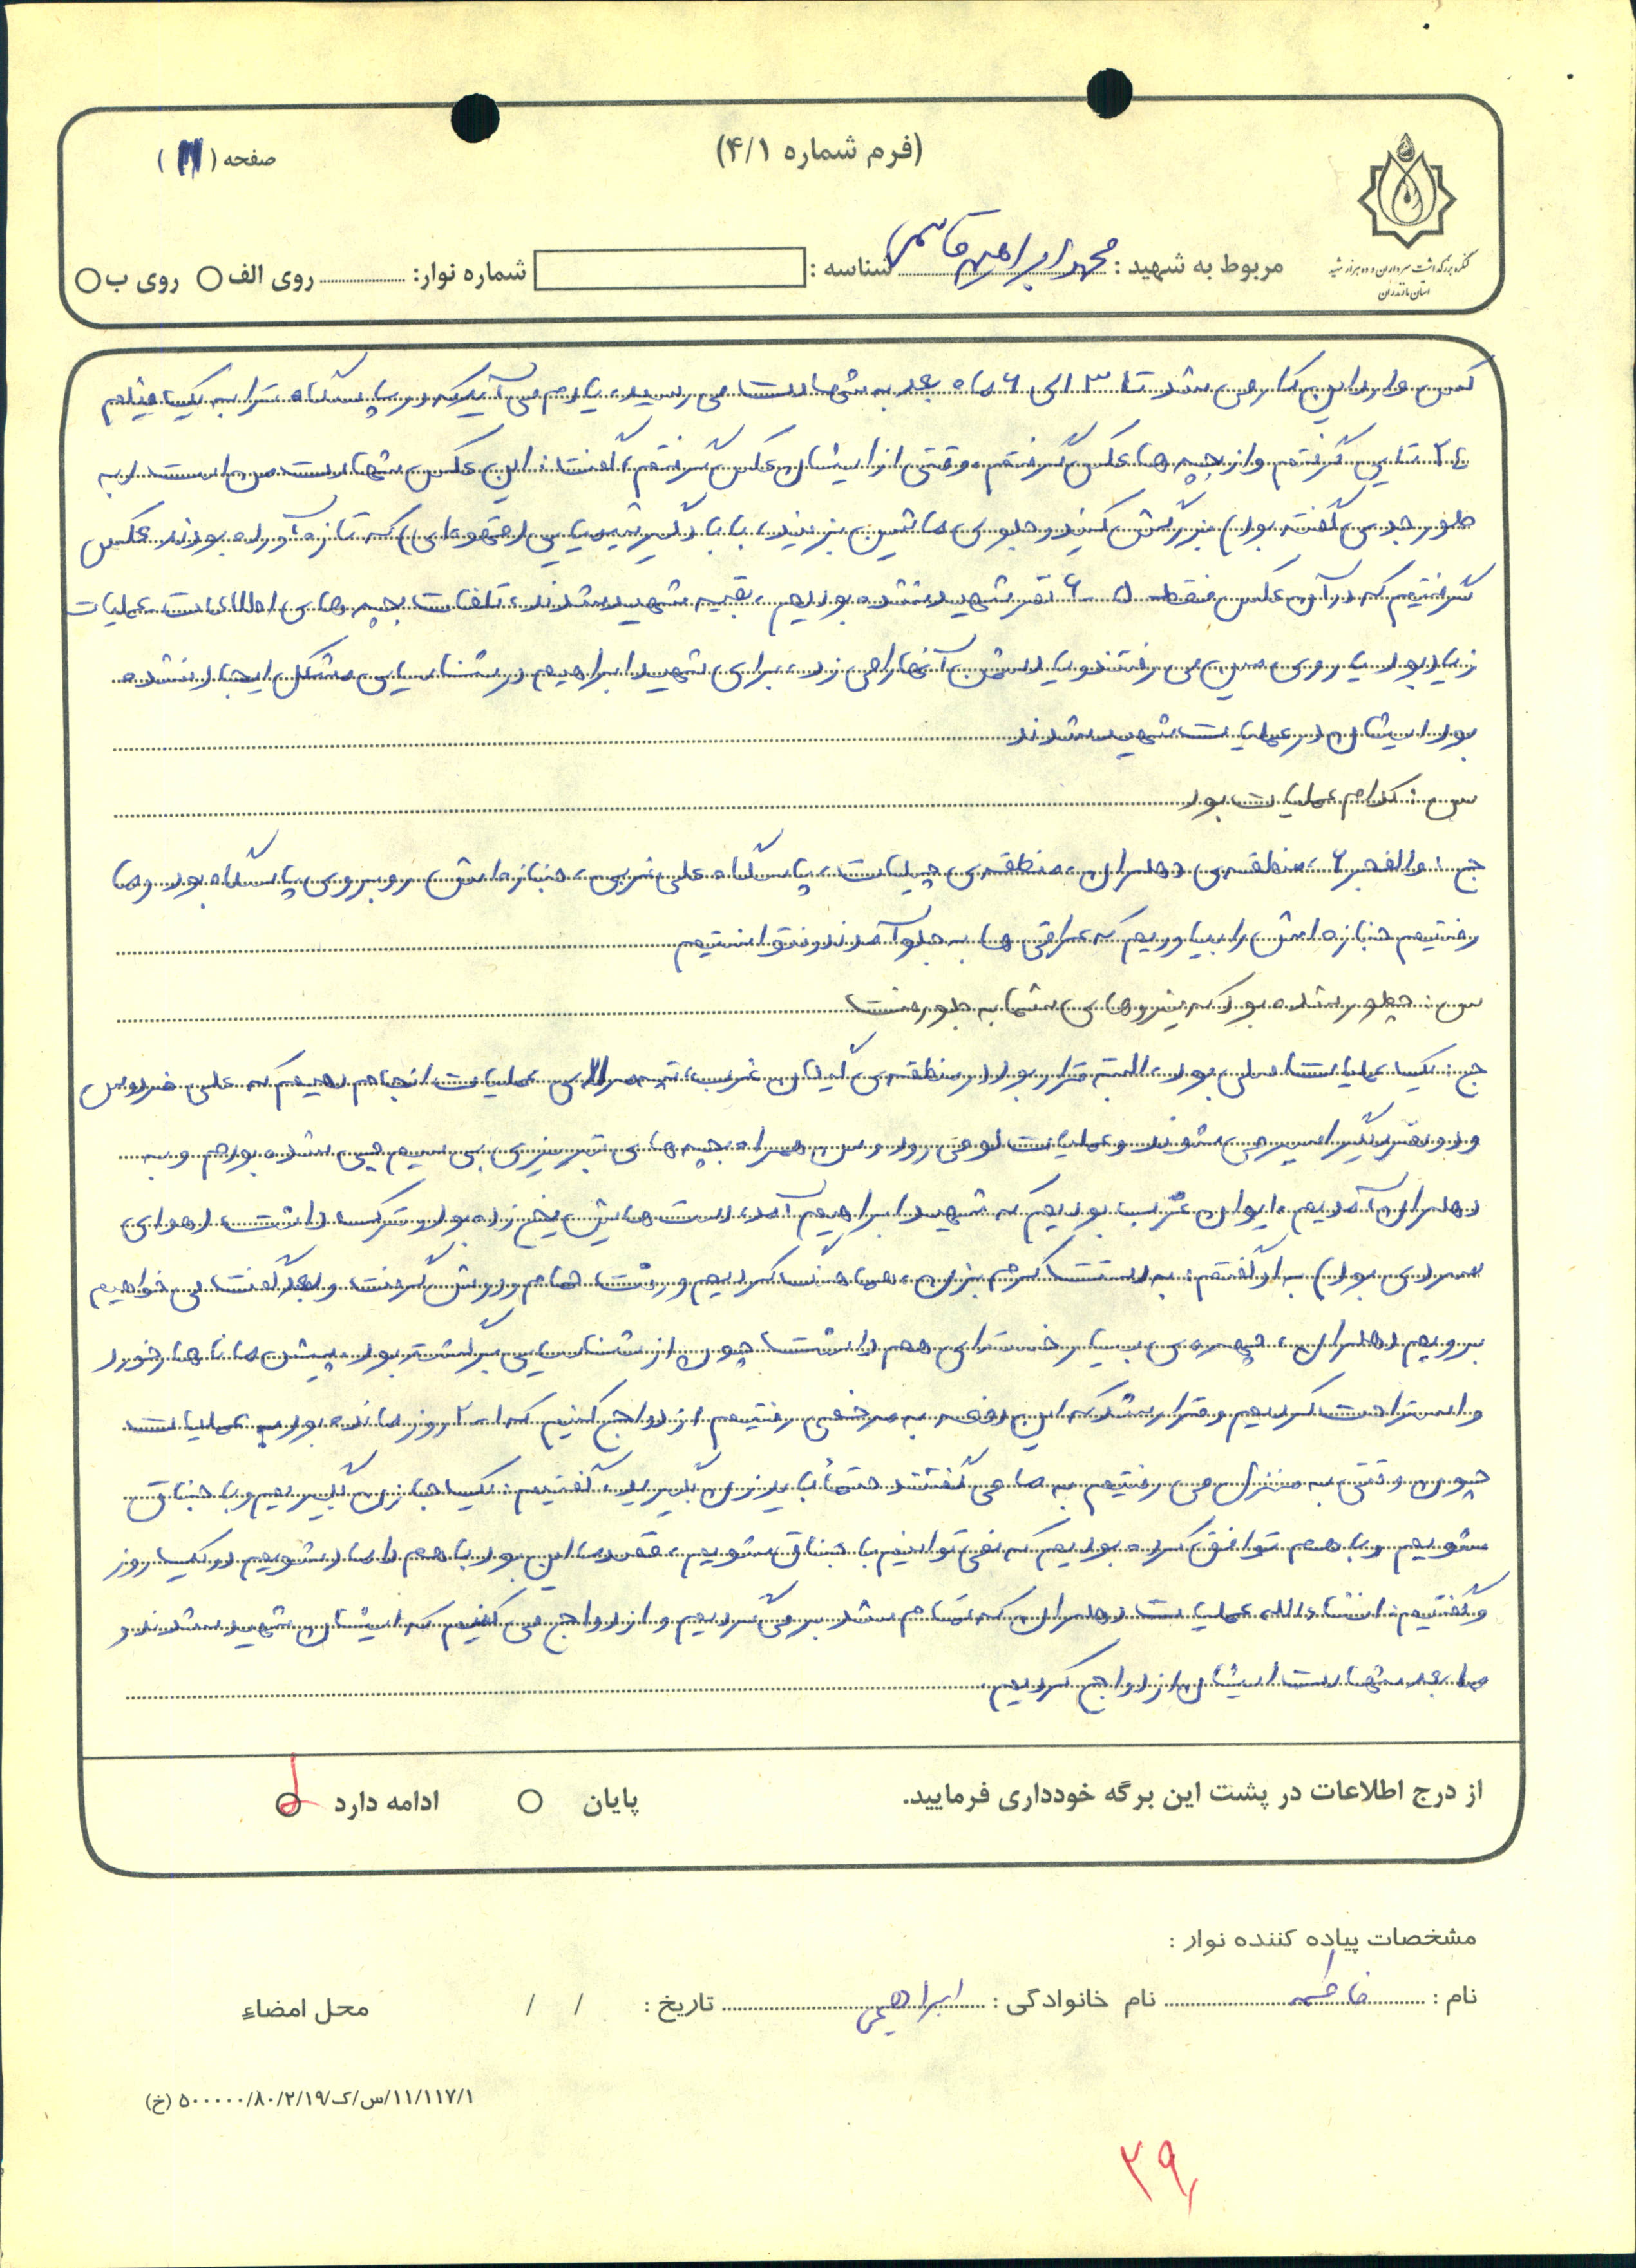 (فرم شماره ۴/۱)
صفحه (۱۱)
کنگره بزرگداشت سرداران و ده هزار شهید
استان مازندران
مربوط به شهید : محمد ابراهیم قاسمی شناسه : شماره نوار: روی الف روی ب
کسی وارد این کار می شد تا ۳ الی ۶ ماه بعد به شهادت می رسید، یادم می آید که در پاسگاه ترابه یک فیلم
۲۰ تایی گرفتم و از بچه ها عکس گرفتم، وقتی از ایشان عکس گرفتم، گفت: این عکس شهادت من است (به
طور جدی گفته بود) بزرگش کنید و جلوی ماشین بزنید، با بادگیر شیمیایی (قهوه ای) که تازه آورده بودند عکس
گرفتیم که در آن عکس فقط ۵ - ۶ نفر شهید نشده بودیم، بقیه شهید شدند، تلفات بچه های اطلاعات عملیات
زیاد بود یا روی مین می رفتند و یا دشمن آنها را می زد، برای شهید ابراهیم در شناسایی مشکل ایجاد نشده
بود ایشان در عملیات شهید شدند
س : کدام عملیات بود
ج : والفجر ۶، منطقه ی دهلران، منطقه ی چیلات، پاسگاه علی غربی، جنازه اش روبروی پاسگاه بود و ما
رفتیم جنازه اش را بیاوریم که عراقی ها به جلو آمدند و نتوانستیم
س : چطور شده بود که نیروهای شما به جلو رفت
ج : یک عملیات ملی بود، البته قرار بود در منطقه ی گیلان غرب، تپه ی عملیات انجام دهیم که علی فردوس
و دو نفر دیگر اسیر می شوند و عملیات لو می رود و من همراه بچه های تبریزی بی سیم چی شده بودم و به
دهلران آمدیم، ایوان غرب بودیم که شهید ابراهیم آمد، دست هایش یخ زده بود و ترک داشت، (هوای
سردی بود) به او گفتم: به دستت کرم بزن، هماهنگ کردیم و رفت حمام و دوش گرفت و بعد گفت می خواهیم
برویم دهلران، چهره ی بسیار خسته ای هم داشت چون از شناسایی برگشته بود. پیش ما ناهار خورد
و استراحت کردیم و قرار شد که این دفعه به مرخصی رفتیم ازدواج کنیم که ۲۰ روز مانده بود به عملیات
چون وقتی به منزل می رفتیم به ما می گفتند حتماً باید زن بگیرید، گفتیم: یکجا زن بگیریم و با جناق
شویم و با هم توافق کرده بودیم که نمی توانیم با جناق شویم، قصد ما این بود با هم داماد شویم در یک روز
و گفتیم: انشاءالله عملیات دهلران که تمام شد برمی گردیم و ازدواج می کنیم که ایشان شهید شدند و
ما بعد شهادت ایشان ازدواج کردیم.
از درج اطلاعات در پشت این برگه خودداری فرمایید. پایان ادامه دارد
مشخصات پیاده کننده نوار :
نام : فاطمه نام خانوادگی : ابراهیمی تاریخ : / / محل امضاء
۱۱/۱۱۷/۱/س/ک/۵۰۰۰۰۰/۸۰/۲/۱۹ (خ)
۳۹